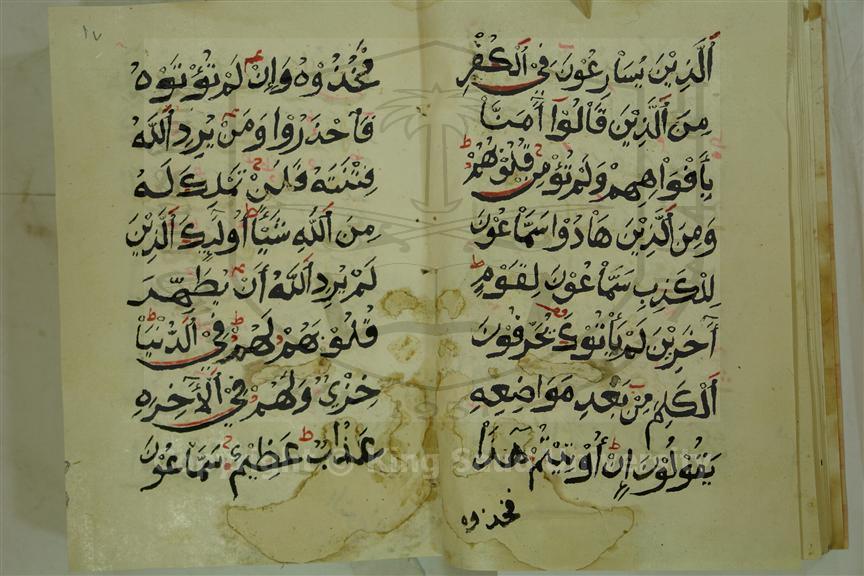 ٱلَّذِيْنَ يُسَارِعُوْنَ فِي ٱلْكُفْرِ
مِنَ ٱلَّذِيْنَ قَالُوْٓا أٰمَنَّا
بِأَفْوَاهِهِمْ وَلَمْ تُؤْمِنْ قُلُوْبُهُمْ
وَمِنَ ٱلَّذِيْنَ هَادُوْا سَمَّاعُوْنَ
لِلْكَذِبِ سَمَّاعُوْنَ لِقَوْمٍ
آخَرِيْنَ لَمْ يَأْتُوْكَ يُحَرِّفُوْنَ
ٱلْكَلِمَ مِنْ بَعْدِ مَوَاضِعِهِ
يَقُوْلُوْنَ إِنْ أُوْتِيْتُمْ هٰذَا
فخذوه
١٧
فَخُذُوْهُ وَإِنْ لَمْ تُؤْتَوْهُ
فَٱحْذَرُوْا وَمَنْ يُرِدِ ٱللّٰهُ
فِتْنَتَهُ فَلَنْ تَمْلِكَ لَهُ
مِنَ ٱللّٰهِ شَيْئًا أُولٰٓئِكَ ٱلَّذِيْنَ
لَمْ يُرِدِ ٱللّٰهُ أَنْ يُطَهِّرَ
قُلُوْبَهُمْ لَهُمْ فِي ٱلدُّنْيَا
خِزْيٌ وَلَهُمْ فِي ٱلْأٰخِرَهِ
عَذَابٌ عَظِيْمٌ سَمَّاعُوْنَ